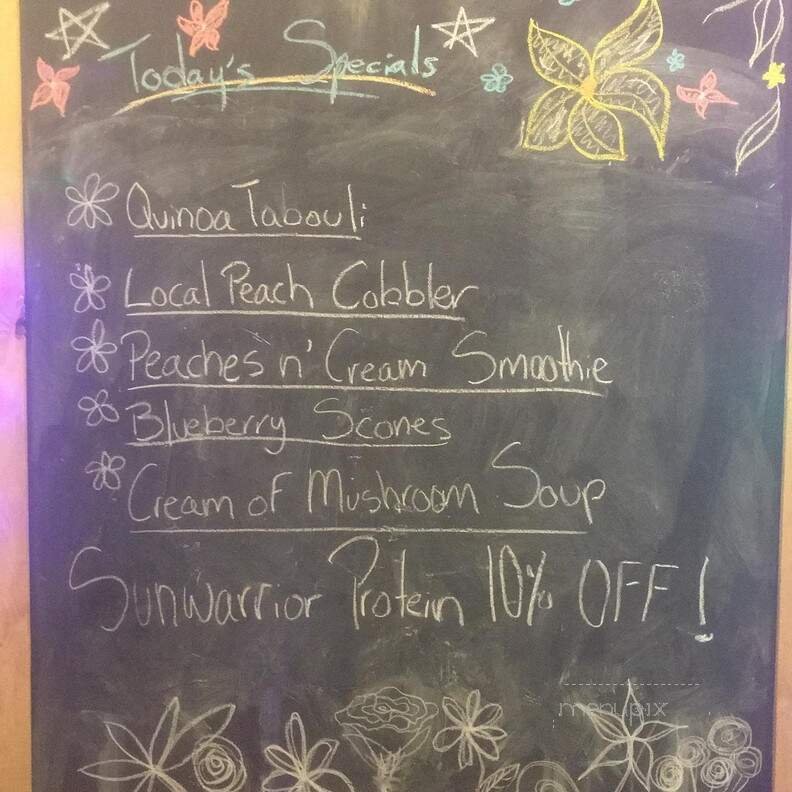 Today's Specials
Quinoa Tabouli
Local Peach Cobbler
Peaches n' Cream Smoothie
Blueberry Scones
Cream of Mushroom Soup
Sunwarrior Protein 10% OFF!
menupix